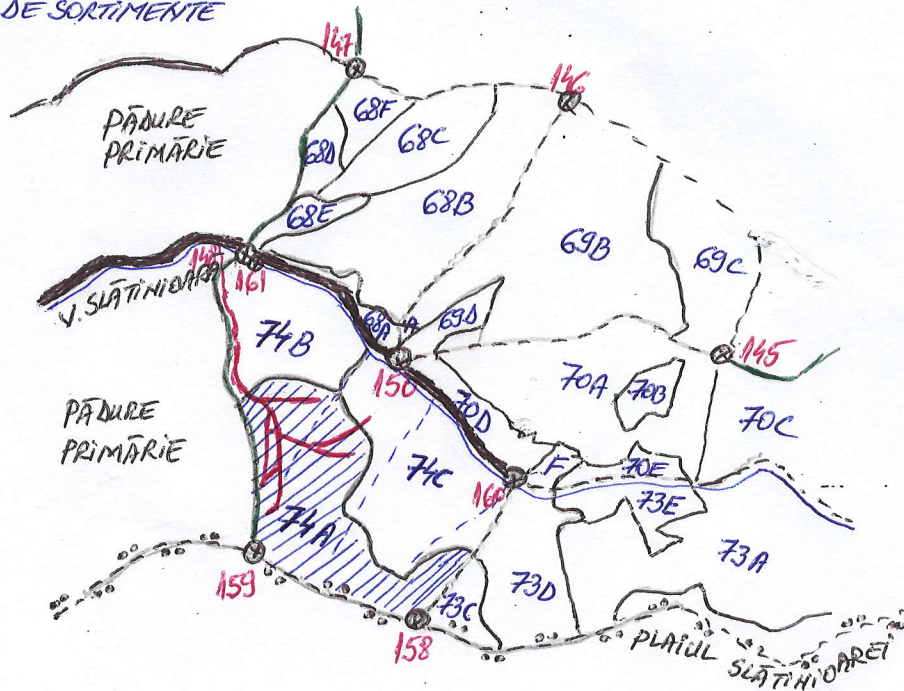 DE SORTIMENTE
147
146
PĂDURE
PRIMĂRIE
68F
68C
68D
68E
68B
69B
69C
148
161
V. SLĂTINIOARA
68A
A
69D
74B
150
145
70A
70B
70D
70C
PĂDURE
PRIMĂRIE
74C
F
70E
160
73E
74A
73A
159
73D
73C
158
PLAIUL
SLĂTINIOAREI